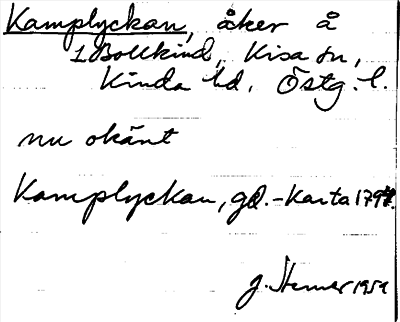 Kamplyckan, åker å
1 Bollkind, Kisa sn,
Kinda hd, Östg. l.
nu okänt
Kamplyckan, gd. - Karta 1797.
J. Stemer 1959